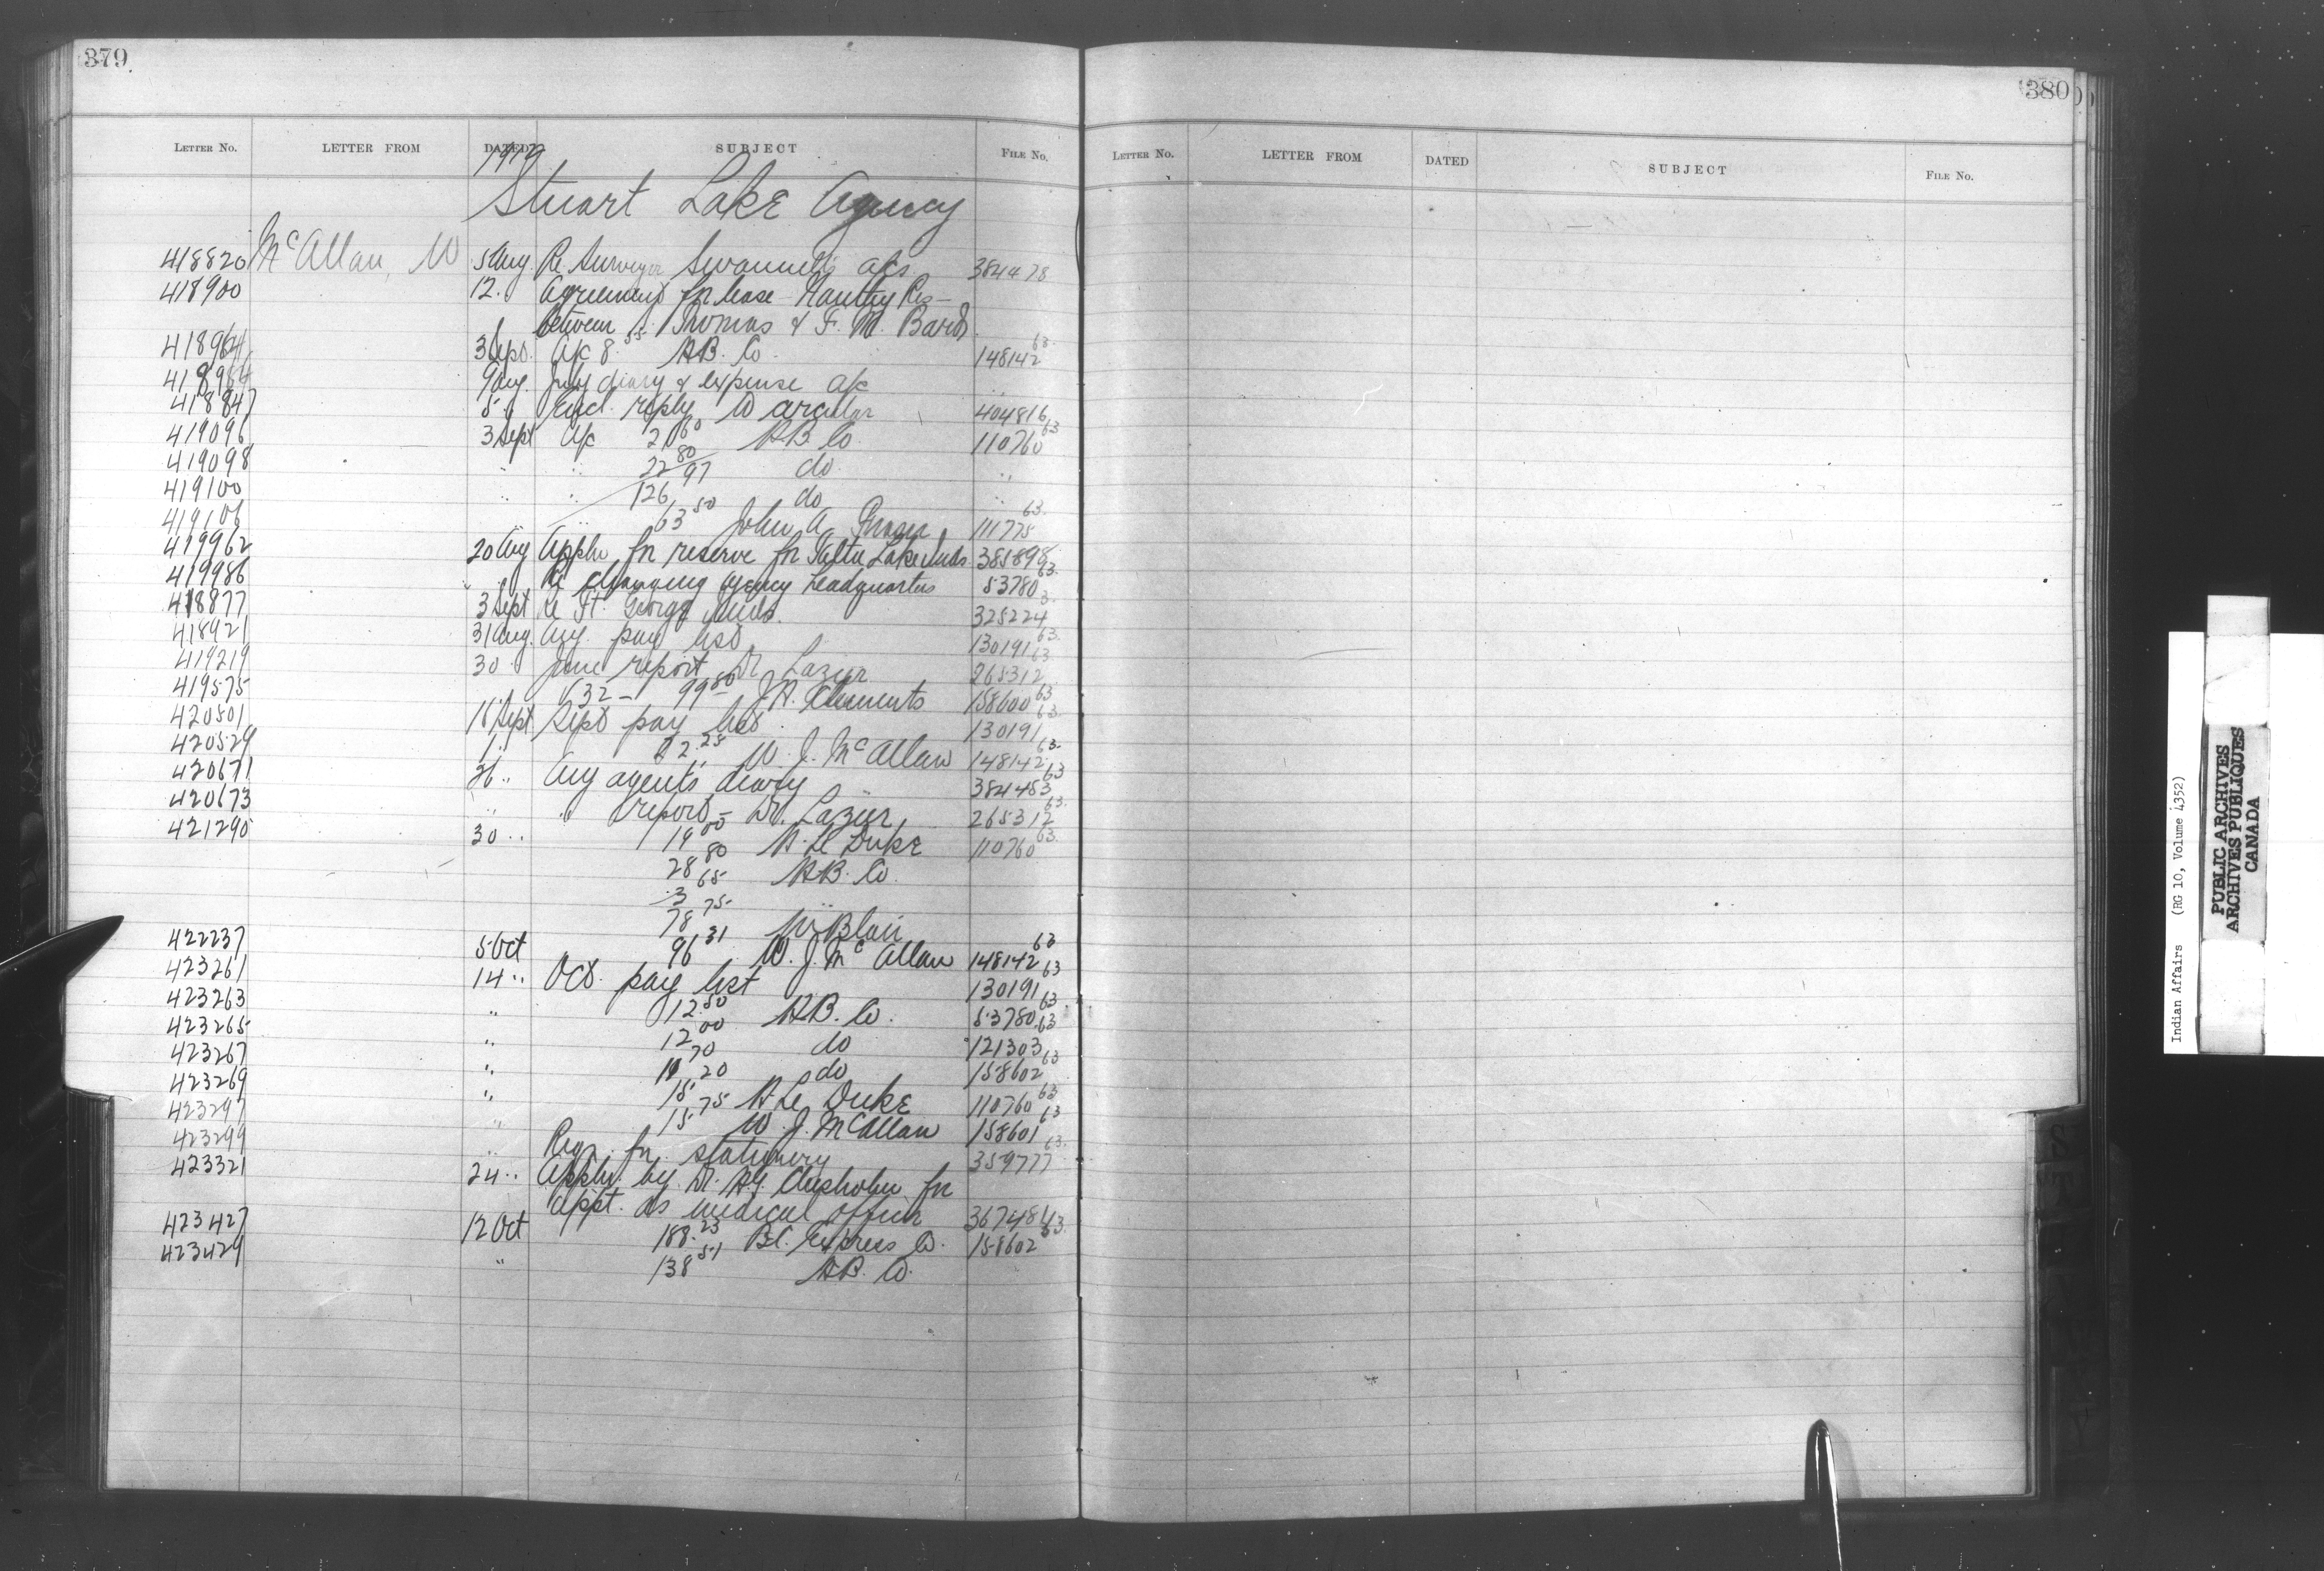 379
LETTER NO. LETTER FROM DATED SUBJECT FILE NO.
1912
Stuart Lake Agency
418820 McAllan, W 5 Aug. Re Surveyor Swannell's a/cs 384478
418900 12 .. Agreement for lease - Res -
between Thomas & F. M.
418964 3 Sept. A/c 8.55 H.B. Co. 148142 63
9 Aug. July diary & expense a/c
418847 5 .. Encl. reply to circular 404816
419096 3 Sept A/c 21 60 H.B. Co. 110760 63
419098 .. .. 22 80 97 do ..
419100 .. .. 126 do ..
419106 .. 63 50 John A 111775 63
419962 20 Aug Appln for reserve for Lake Inds 385898
419986 .. Re changing agency headquarters 53780 63
418877 3 Sept Re Ft. George Inds. 325224 3
418921 31 Aug. Aug. pay list 130191 63
419219 30 .. June report Dr. Lazier 265312 63
419575 V 32 - 99 80 J.A. Clements 158600 63
420501 16 Sept Sept pay list 130191 63
420529 1 .. 22.25 W. J. McAllan 148142 63
420671 26 .. Aug agent's diary 384483 63
420673 .. " report - Dr. Lazier 265312 63
421295 30 .. 19 00 H. Le Duke 110760 63
28 80 H.B. Co.
3 65 ..
78 75 W Blair
422237 5 Oct 96 31 W. J. McAllan 148142 63
423261 14 .. Oct. pay list 130191 63
423263 .. 12.50 H.B. Co. 53780 63
423265 .. 12 00 do 121303 63
423267 .. 11 70 do 158602 63
423269 .. 15 20 H. Le Duke 110760 63
423297 .. 15 75 W. J. McAllan 158601 63
423299 .. Req. for stationery 359777 63
423321 24 .. Appln. by Dr. Chisholm for
appt. as medical officer 367484
423427 12 Oct 188.23 B.C. Express Co. 158602 63
423429 .. 138 51 H.B. Co.
380
LETTER NO. LETTER FROM DATED SUBJECT FILE NO.
Indian Affairs (RG 10, Volume 4352)
PUBLIC ARCHIVES
ARCHIVES PUBLIQUES
CANADA